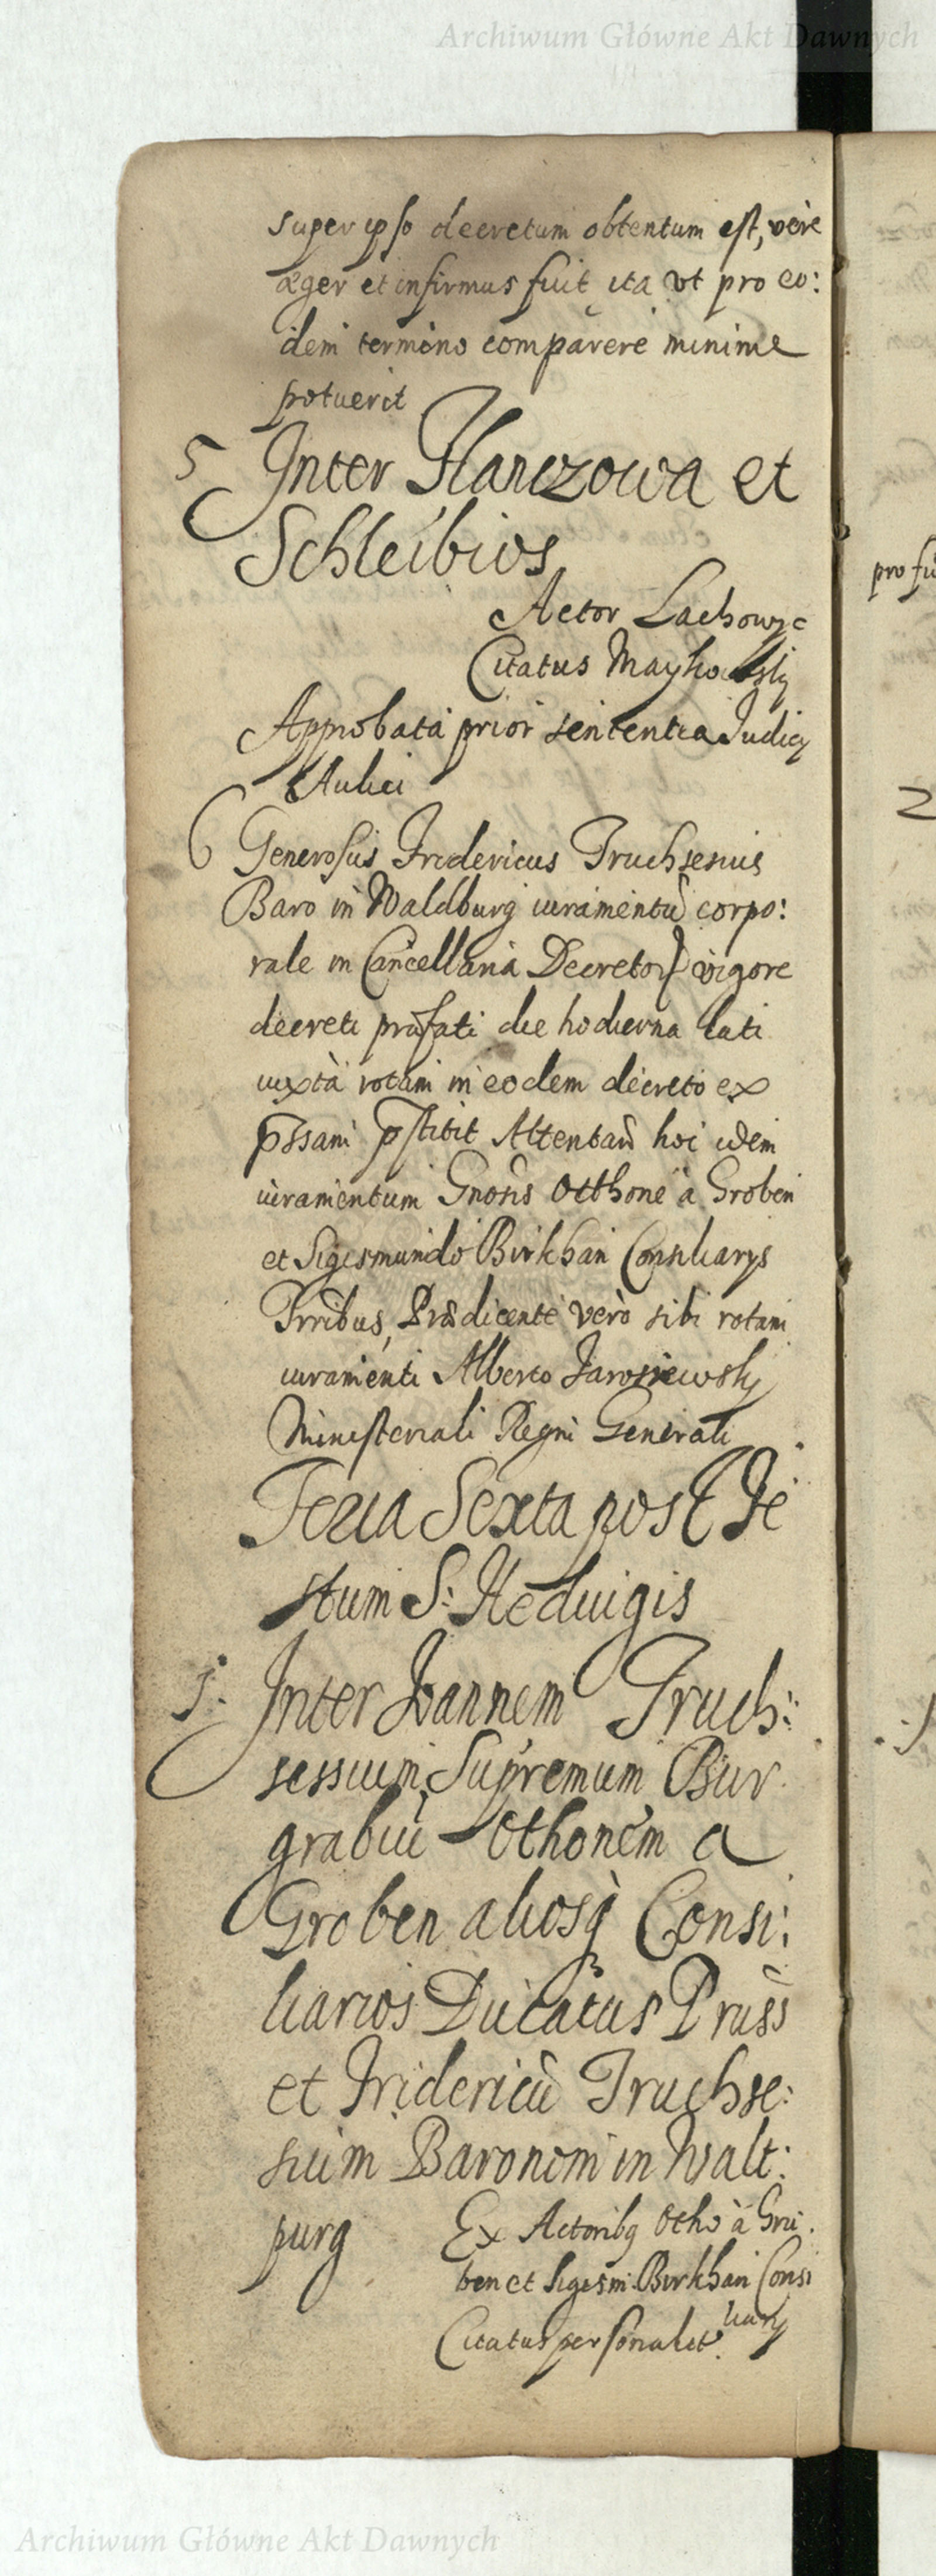 Archiwum Główne Akt Dawnych
super ipso decretum obtentum est, vere
æger et infirmus fuit ita vt pro eo:
dem termino comparere minime
potuerit
5 Inter Hanczowa et
Schleibios
Actor Lachowic
Citatus
Approbata prior sententia Judicy
Aulici
6 Generosus Fridericus Truchsesius
Baro in Waldburg iuramentũ corpo:
rale in Cancellaria Decretor vigore
decreti præfati die hodierna lati
iuxtà rotam in eodem decreto ex
pssam pstitit Attentan hoi idem
iuramentum Gnosis Otthone à Groben
et Sigismundo Birkhan Consiliarys
Prribus, Prædicente verò sibi rotam
iuramenti Alberto Jarosiewsky
Ministeriali Regni Generali
Feria Sexta post Fe
stum S: Heduigis
1. Inter Joannem Truch:
sessium Supremum Bur
grabiũ Othonem a
Groben aliosq Consi:
liarios Ducatus Pruss
et Fridericũ Truchse:
sium Baronem in Walt:
purg
Ex Actoribq Otho à Gru
ben et Sigism: Birkhan Consi
liary
Citatus personalit
pro fu
2
Archiwum Główne Akt Dawnych